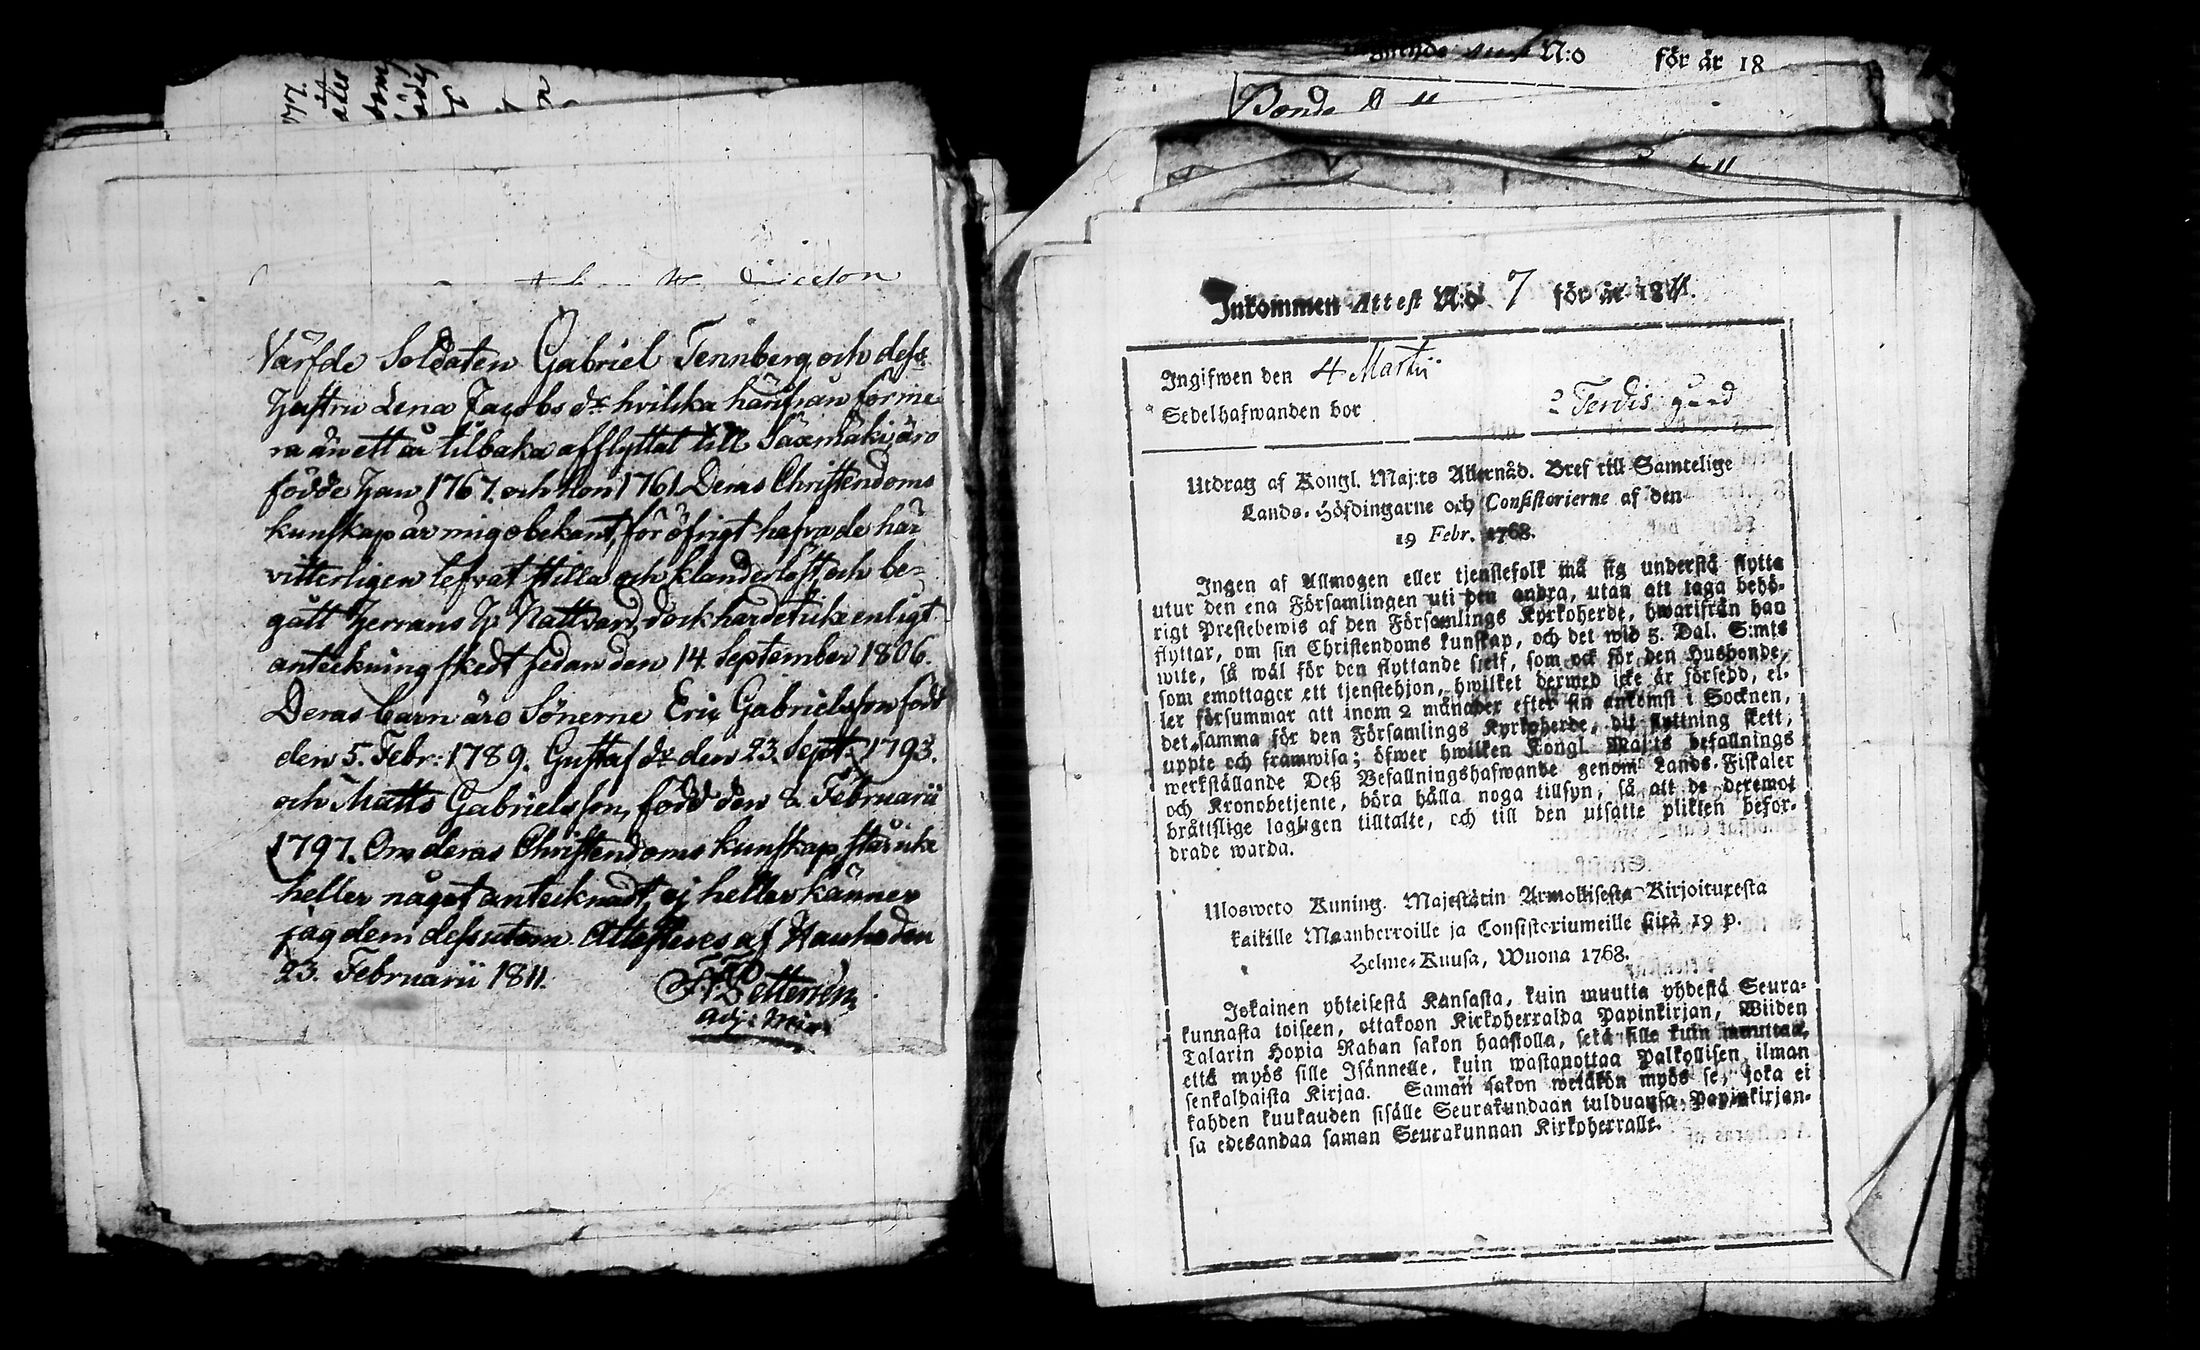 Värfde Soldaten Gabriel Tennberg och dess
Hustru Lena Jacobs dr hvilka härifrån för me
ra än ett år tilbaka afflyttat till Säxmäki, äro
födde Han 1767. och hon 1761. Deras Christendoms
kunskap är mig obekant, för öfrigt hafva de här
vitterligen lefvat stilla och klanderlöst, och be-
gått Herrans H. Nattvard, dock har det icke enligt
anteckning skedt sedan den 14. September 1806.
Deras barn äro Sönerne Eric Gabrielsson född
den 5. Febr: 1789. Gustaf dr den 23. Sept: 1793.
och Matts Gabrielsson, född den 2. Februarii
1797. Om deras Christendoms kunskap står icke
heller något antecknadt, ej heller känner
jag dem dessutom. Attesteres af Hauho den
23. Februarii 1811.
Adj: Min:
N:o för år 18
Bonde
Inkommen Attest N:o 7 för år 1811.
Ingifwen den 4 Martii
Sedelhafwanden bor
Utdrag af Kongl. Maj:ts Allernåd. Bref till Samtelige
Lands-Höfdingarne och Consistorierne af den
19 Febr. 1768.
Ingen af Allmogen eller tjenstefolk må sig understå flytta
utur den ena Församlingen uti den andra, utan att taga behö-
rigt Prestebewis af den Församlings Kyrkoherde, hwarifrån han
flyttar, om sin Christendoms kunskap, och det wid 5. Dal. S:mts
wite, så wäl för den flyttande sjelf, som ock för den Husbonde,
som emottager ett tjenstehjon, hwilket dermed icke är försedd, el-
ler försummar att inom 2 månader efter sin ankomst i Socknen,
det samma för den Församlings Kyrkoherde, dit flyttning skett,
uppte och framwisa; öfwer hwilken Kongl. Maj:ts befallnings
werkställande Deß Befallningshafwande genom Lands-Fiskaler
och Kronobetjente, böra hålla noga tillsyn, så att de deremot
bråttslige lagligen tilltalte, och till den utsatte plikten befor-
drade warda.
Ulosweto Kuning. Majestätin Armollisesta Kirjoituxesta
kaikille Maanherroille ja Consistoriumeille siitä 19 p.
Helme-Kuusa, Wuona 1768.
Jokainen yhteisestä Kansasta, kuin muutta yhdestä Seura-
kunnasta toiseen, ottakoon Kirkoherralda Papinkirjan, Wiiden
Talarin Hopia Rahan sakon haastolla, sekä sille kuin muuttaa,
että myös sille Isännelle, kuin wastanottaa Palkollisen ilman
senkaldaista Kirjaa. Saman sakon wetäkön myös se, joka ei
kahden kuukauden sisälle Seurakundaan tulduansa, Papinkirjan-
sa edesandaa saman Seurakunnan Kirkoherralle.